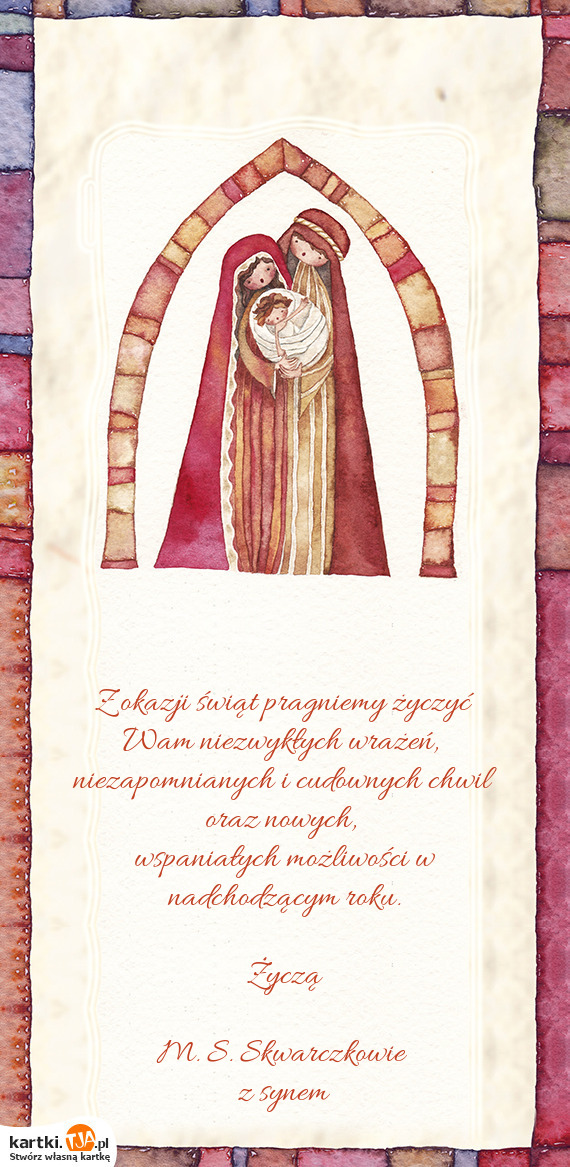 Z okazji świąt pragniemy życzyć
Wam niezwykłych wrażeń,
niezapomnianych i cudownych chwil
oraz nowych,
wspaniałych możliwości w
nadchodzącym roku.
Życzą
M. S. Skwarczkowie
z synem
kartki.TJA.pl
Stwórz własną kartkę